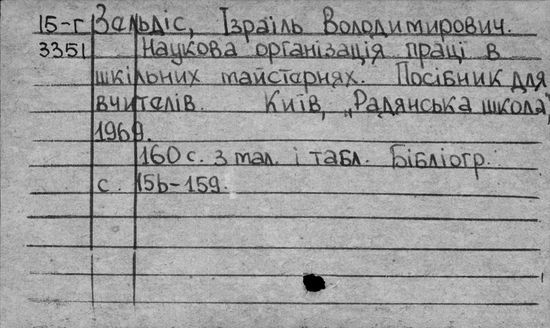 15-г Зальдіс, Ізраїль Володимирович.
3351 Наукова організація праці в
шкільних майстернях. Посібник для
вчителів. Київ, „Радянська школа",
1969.
160 с. з мал. і табл. Бібліогр.
с. 156-159.